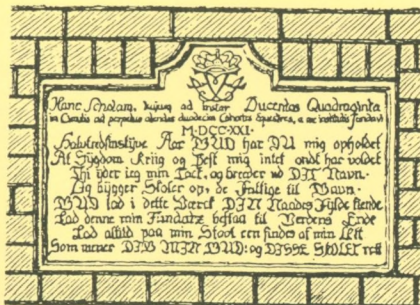 Hanc Scholam, kujus ad instar Ducentas Quadraginta
in Circulis ad perpetuo alendas duodecim Cohortes equestres, a me institutis Fundavi
M·DCC·XXI·
Halvtredsinstÿve Aar GUD har DU mig opholdet
At Sÿgdom Kriig og Pest mig intet ondt har voldet
Thi ÿder ieg min Tack, og breeder ud DIT Navn.
Og bÿgger Skoler op, de Fattige til Gavn.
GUD lad i dette Værck DIN Naades Fÿlde kiende
Lad denne min Fundatz bestaa til Verdens Ende
Lad altiid paa min Stool een findes af min Ætt
Som mener DIG MIN GUD: og DISSE SKOLER rett